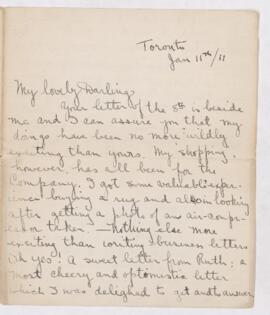 Toronto
Jan 11th/11
My lovely Darling,
Your letter of the 8th is beside
me and I can assure you that my
doings have been no more wildly
exciting than yours. My shopping,
however, has all been for the
Company. I got some valuable exper-
ience buying a rug and also in looking
after getting a photo of an air-comp-
ressor taken. — nothing else more
exciting than writing business letters
Oh yes! A sweet letter from Ruth; a
most cheery and optomistic letter
which I was delighed to get and to answer